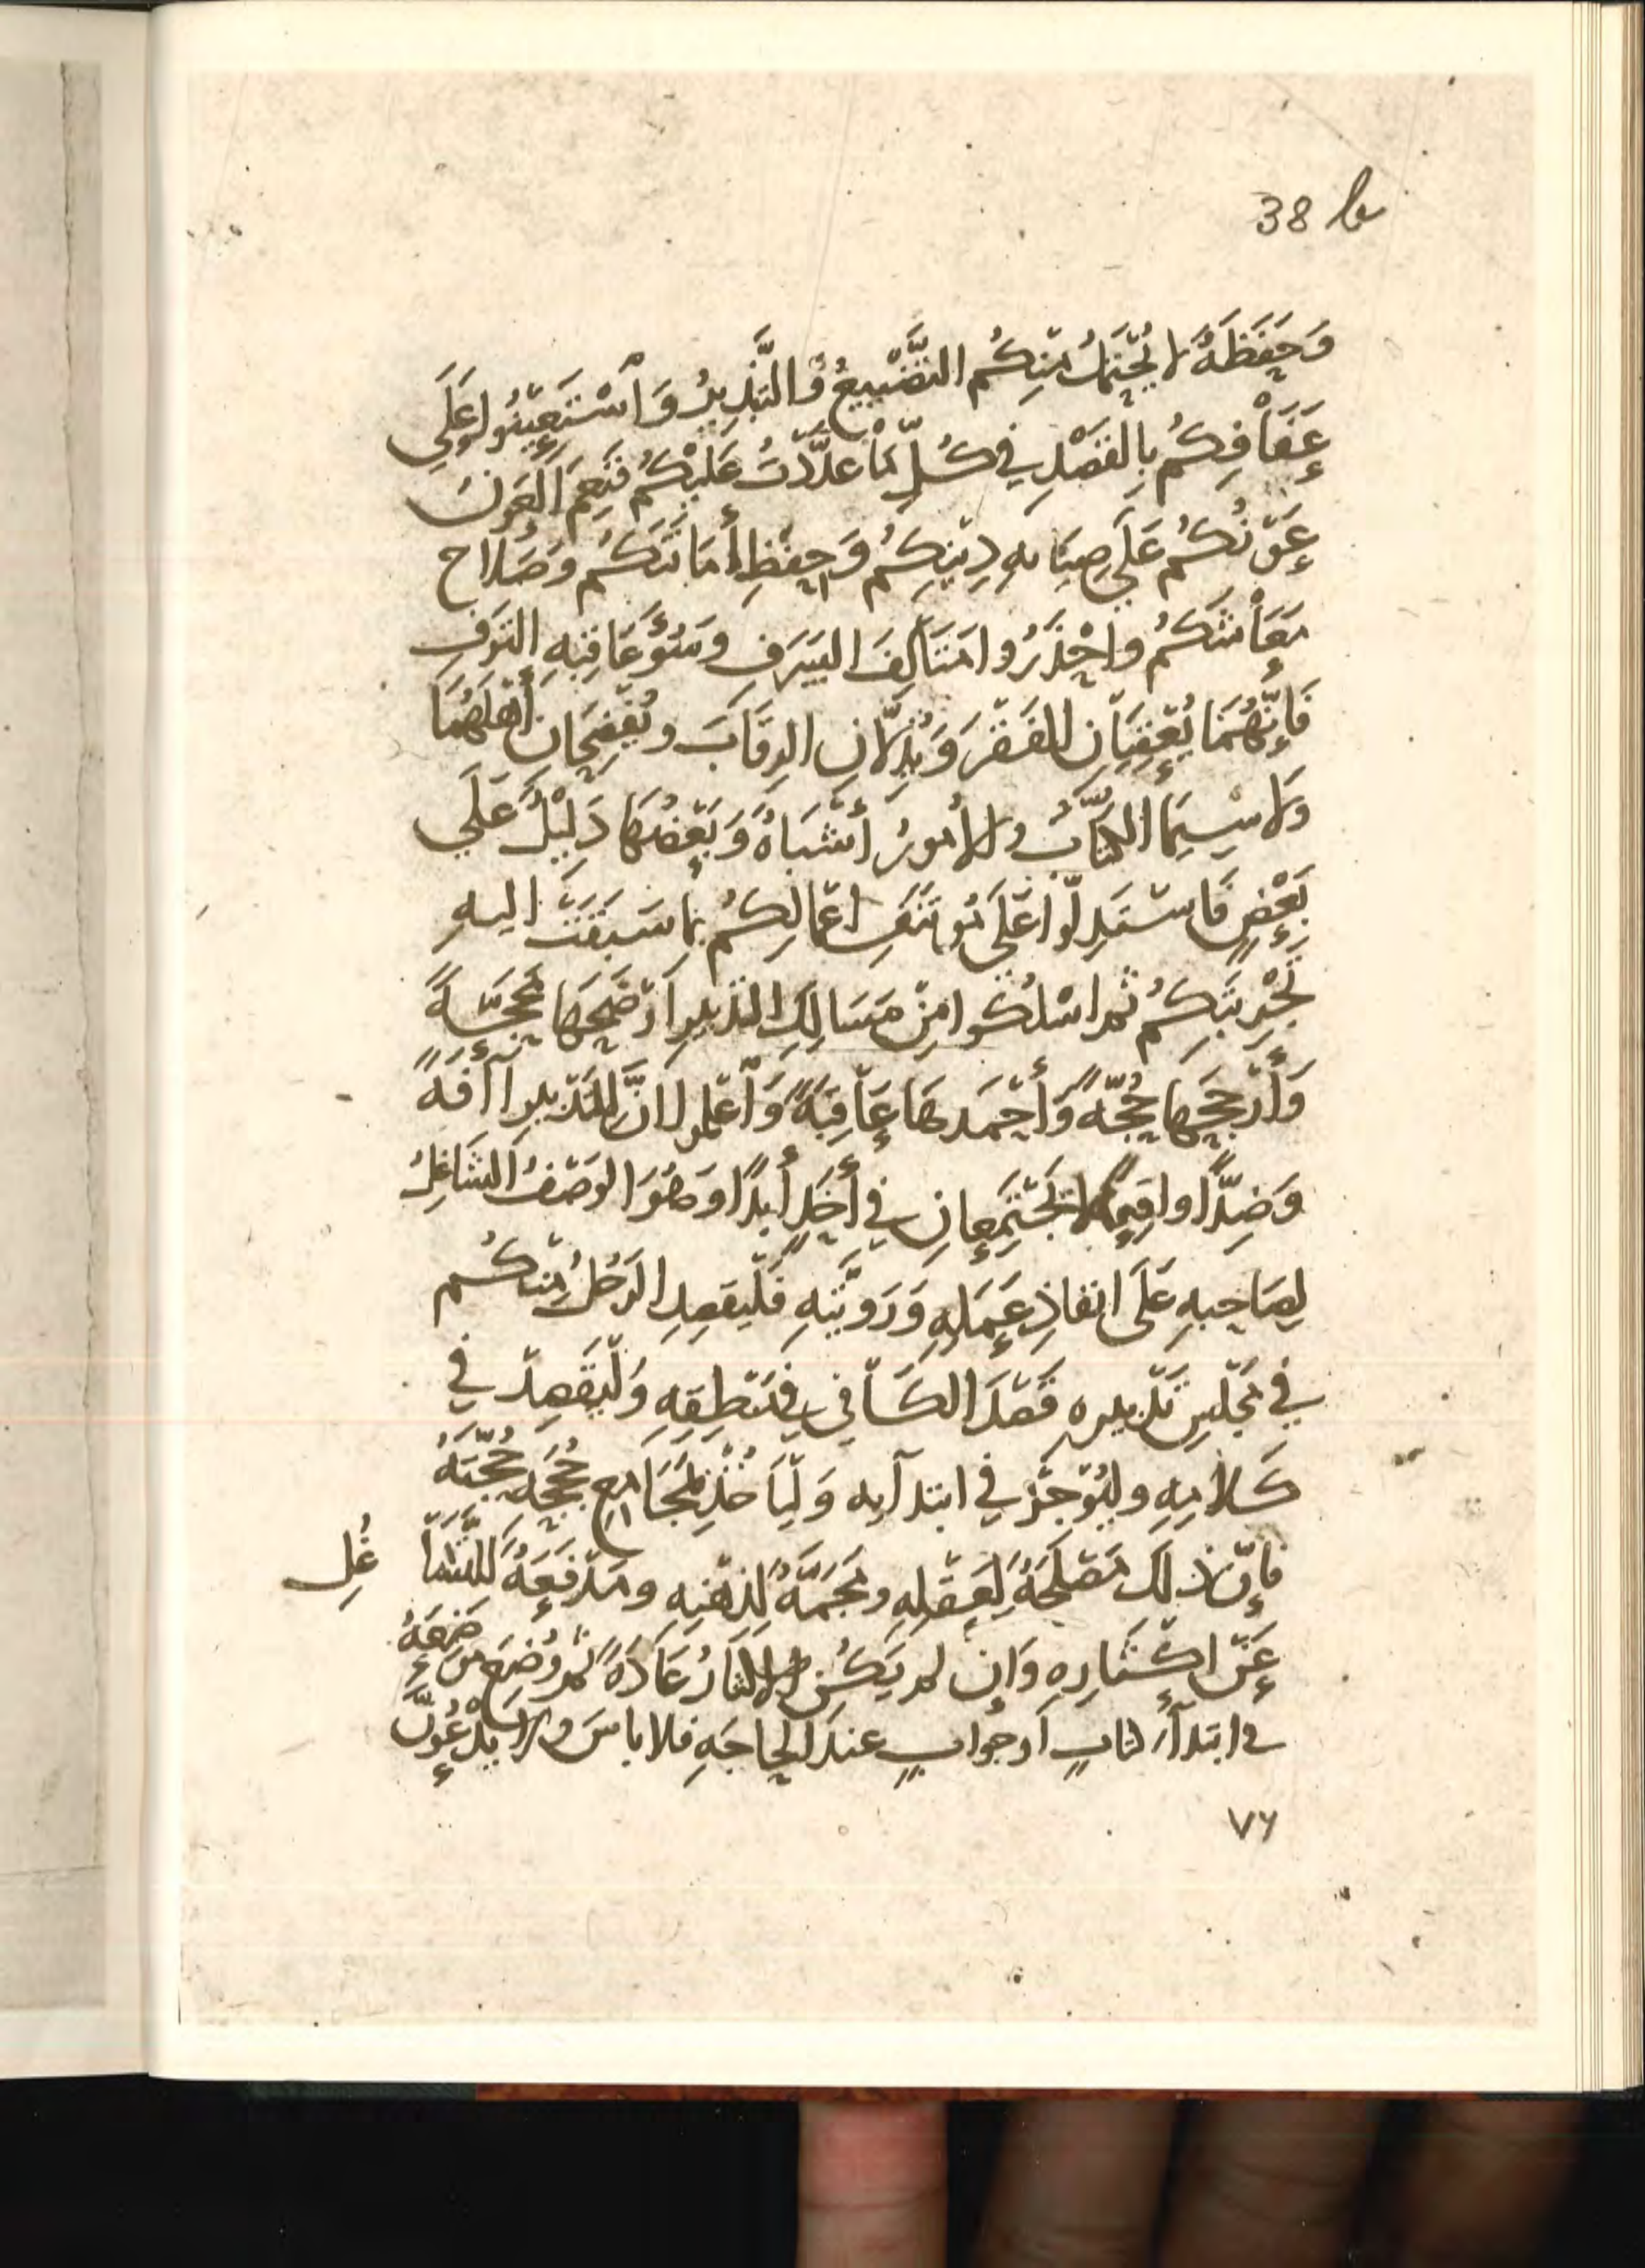 38 b
وَحَفَظَةً لا يُحْتَمَلُ مِنكُم التَّضْيِيعُ وَالتَّبْذِيرُ وَاسْتَعِينُوا عَلَى
عَفَافِكُم بِالقَصْدِ فِي كُلِّ مَا عَدَّدْتُ عَلَيْكُم فَنِعْمَ العَوْنُ
عَوْنُكُم عَلَى صِيَانهِ دِينِكُم وَحِفْظِ أَمَانَتكُم وَصَلاح
مَعَاشكُم واحْذَرُوا مَتَالِفَ السَرَفِ وسُوٓءَ عَاقِبَهِ التَرفِ
فَإِنَّهُمَا يُعْقِبَانِ الفَقْرَ وَيُذِلَّانِ الرِقَابَ ويُفْضِحَانِ أَهْلَهُمَا
وَلا سِيمَا الكُتَّابُ والأُمورُ أَشْبَاهٌ وَبَعْضُهَا دَلِيْلٌ عَلَي
بَعْضٍ فَاسْتَدِلُّوا عَلَى مُوتَنَفِ اعْمالِكُم بما سَبَقَت اليهِ
تَجْرِبَتكُم ثم اسْلُكُوا مِنْ مَسَالِكِ التدبيرِ أوْضَحِهَا مَحَجَّةً
وَأرْجَحِهَا حُجَّةً وَأَحْمَدِهَا عَاقِبَةً وَاعْلموا انَّ للتَدْبيرِ آفَةً
وَضِدًّا واقِعًا لا يَجْتَمِعانِ في أَحَدٍ أَبدًا وَهُوَ الوَصْفُ الشَاغِلُ
لِصَاحِبهِ عَلَى انفاذِ عَمَلِهِ وَرَويَّتهِ فَلْيَقصِدِ الرَجُلُ مِنكُم
فِي مَجْلسِ تَدْبيره قَصْدَ الكَافِي في مَنْطِقِهِ وَلْيَقْصِدْ في
كَلَامِهِ وليُوْجِزْ في ابتدآيه وَلْيَاخُذْ بمَجَامِعِ حُجَجِهِ حُجَّتهُ
فإنَّ ذلكَ مَصْلَحَةٌ لِعَقْلِهِ ومَجَمَّةٌ لِذهْنِهِ ومَدْفَعَةٌ للتَّشَا غُلِ
عَنْ اكْثَارِهِ وَإِن لم يَكُن الاكثارُ عَادَةً ثم وُضِعَ مَوْضِعَهُ
في ابتدآءِ كتابٍ أو جَوابٍ عندَ الحاجَةِ فلا باسَ ولا يَدْعُوَنَّ
٧٦